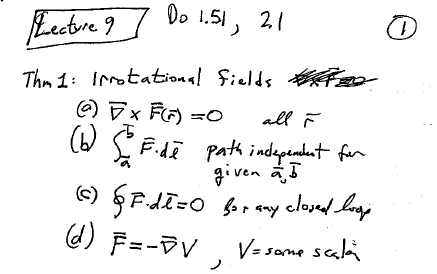 Lecture 9 Do 1.51, 2.1 1
Thm 1: Irrotational fields
(a) ∇̄ × F̄(r̄) = 0 all r̄
(b) ∫_ā^b̄ F̄·dl̄ path independent for
given ā, b̄
(c) ∮ F̄·dl̄ = 0 for any closed loop
(d) F̄ = -∇̄V, V = some scalar